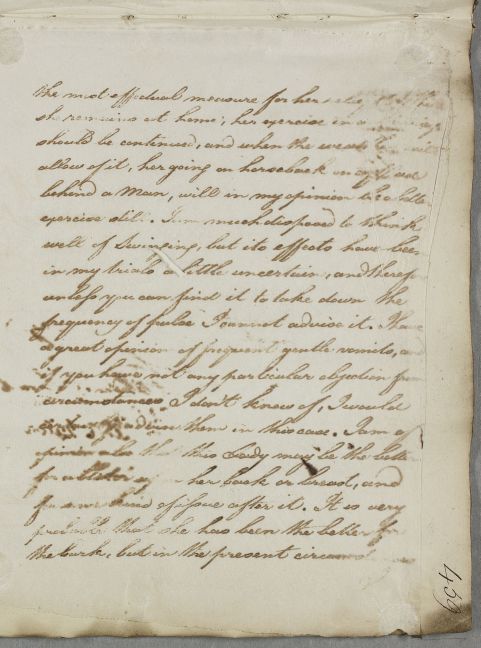 the most effectual measure for her
she remains at home, her exercise in a
should be continued, and when the weather will
allow of it, her going on horseback
behind a Man, will in my opinion be a better
exercise still. I am much disposed to think
well of Swinging, but its effects have been
in my trials a little uncertain, and therefore
unless you can find it to take down the
frequency of pulse I cannot advise it. I have
a great opinion of frequent gentle vomits, and
if you have not any particular objection from
circumstances I don't know of, I would
advise them in this case. I am of
opinion also that this Lady may be the better
for a blister upon her back or breast, and
for some kind of issue after it. It is very
probable that she has been the better for
the bark, but in the present
459